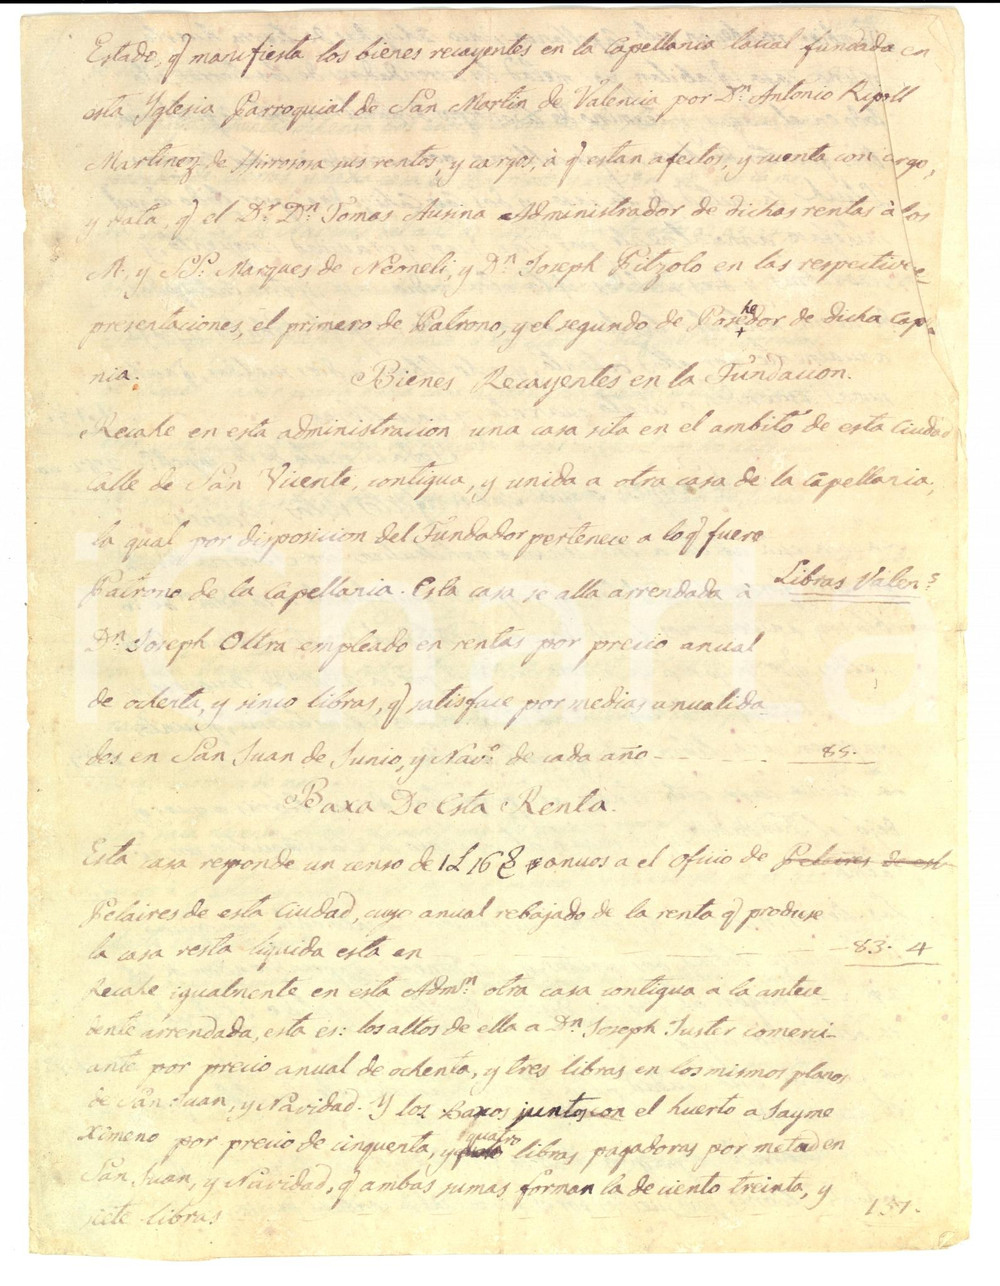 Estado, q̃ manifiesta los bienes recayentes en la Capellania laical fundada en
esta Yglesia Parroquial de San Martin de Valencia por Dn. Antonio Ripoll
Martinez de sus rentas, y cargos, à q̃ estan afectos, y cuenta con cargo,
y data, q̃ el Dr. Dn. Tomas Ausina Administrador de dichas rentas à los
M. y SSs. Marques de Neoneli, y Dn. Joseph Fitzolo en las respectives
presentaciones, el primero de Patrono, y el segundo de Posehedor de dicha Capella
nia. Bienes Recayentes en la Fundacion.
Recahe en esta administracion una casa sita en el ambito de esta Ciudad
calle de San Vicente, contigua, y unida a otra casa de la Capellania,
la qual por disposicion del Fundador pertenece a lo q̃ fuere
Patrono de la Capellania. Esta casa se alla arrendada à
Libras Valens
Dn. Joseph Oltra empleado en rentas por precio anual
de ochenta, y sinco libras, q̃ satisface por medias anualida
des en San Juan de Junio, y Navd. de cada año - - - 85.
Baxa De Esta Renta.
Esta casa responde un censo de 1 L 16 S anuos a el oficio de Pelaires de est
Pelaires de esta Ciudad, cuyo anual rebajado de la renta q̃ produse
la casa resta liquida esta en - - - 83. 4
Recahe igualmente en esta Admon. otra casa contigua a la antece
dente arrendada, esta es: los altos de ella a Dn. Joseph Fuster comerci-
ante por precio anual de ochenta, y tres libras en los mismos plazos
de San Juan, y Navidad. Y los Baxos juntos con el huerto a Jayme
Ximeno por precio de cinquenta, y quatro libras pagadoras por metad en
San Juan, y Navidad, q̃ ambas sumas forman la de ciento treinta, y
siete libras - - - 137.
iCharta